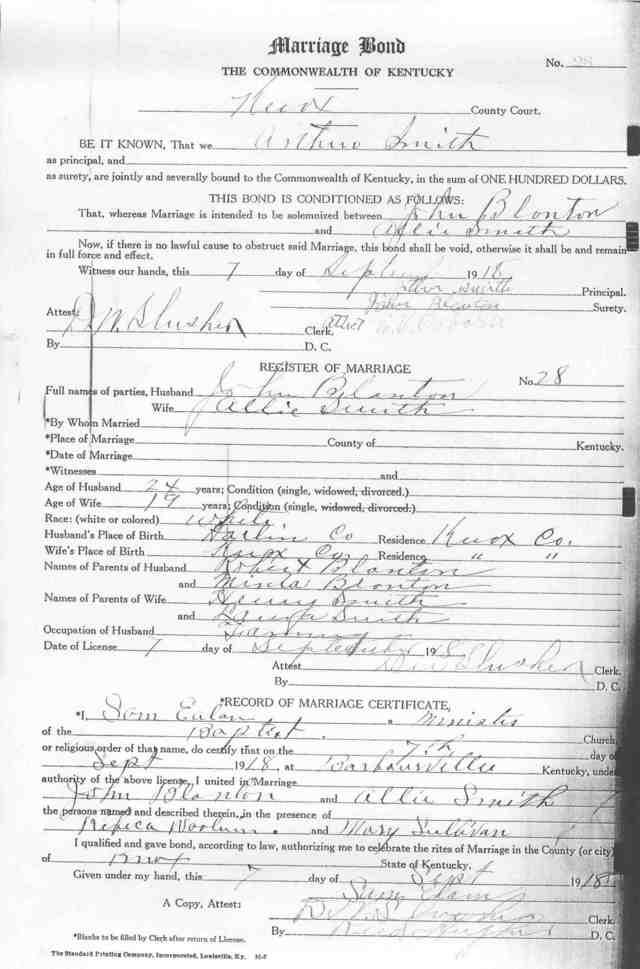 Marriage Bond
No. 28
THE COMMONWEALTH OF KENTUCKY
Knox County Court.
BE IT KNOWN, That we Arthur Smith
as principal, and
as surety, are jointly and severally bound to the Commonwealth of Kentucky, in the sum of ONE HUNDRED DOLLARS.
THIS BOND IS CONDITIONED AS FOLLOWS:
That, whereas Marriage is intended to be solemnized between John Blanton
and Allie Smith
Now, if there is no lawful cause to obstruct said Marriage, this bond shall be void, otherwise it shall be and remain
in full force and effect.
Witness our hands, this 7 day of September 1918
Smith Principal.
John Blanton Surety.
Attest: D. W. Slusher Clerk. Attest
By D. C.
REGISTER OF MARRIAGE
No. 28
Full names of parties, Husband John Blanton
Wife Allie Smith
*By Whom Married
*Place of Marriage County of Kentucky.
*Date of Marriage
*Witnesses and
Age of Husband 24 years; Condition (single, widowed, divorced.)
Age of Wife 19 years; Condition (single, widowed, divorced.)
Race: (white or colored) white
Husband's Place of Birth Harlin Co Residence Knox Co.
Wife's Place of Birth Knox Co Residence " "
Names of Parents of Husband Robert Blanton
and Blanton
Names of Parents of Wife Henry Smith
and Smith
Occupation of Husband Farming
Date of License 7 day of September 1918
Attest D W Slusher Clerk.
By D. C.
*RECORD OF MARRIAGE CERTIFICATE,
*I, Sam a Minister
of the Baptist Church,
or religious order of that name, do certify that on the 7th day of
Sept 1918 at Barbourville Kentucky, under
authority of the above license, I united in Marriage
John Blanton and Allie Smith
the persons named and described therein, in the presence of
Woolum and Mary Sullivan
I qualified and gave bond, according to law, authorizing me to celebrate the rites of Marriage in the County (or city)
of Knox State of Kentucky,
Given under my hand, this 7 day of Sept 1918
Sam
A Copy, Attest: Clerk.
By D. C.
*Blanks to be filled by Clerk after return of License.
The Standard Printing Company, Incorporated, Louisville, Ky.